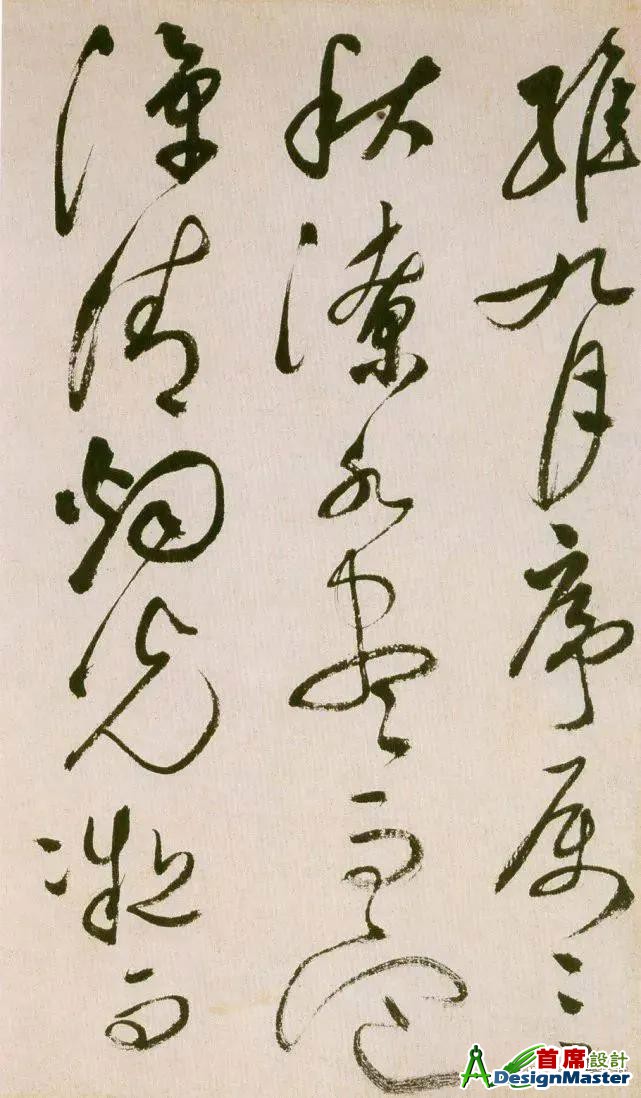 維九月序属三
秋潦水盡而寒
潭清烟光凝而
首席設計
DesignMaster